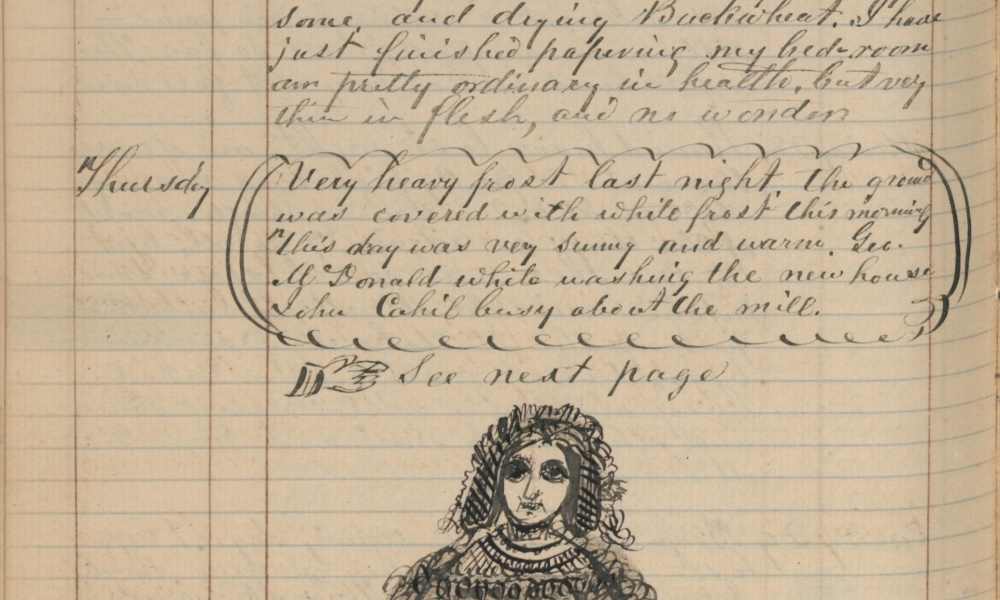 some, and drying Buckwheat. I have
just finished papering my bed-room
am pretty ordinary in health, but very
thin in flesh, and no wonder
Thursday
Very heavy frost last night. The ground
was covered with white frost this morning
This day was very sunny and warm. Geo.
Mc Donald white washing the new house
John Cahil busy about the mill.
See next page